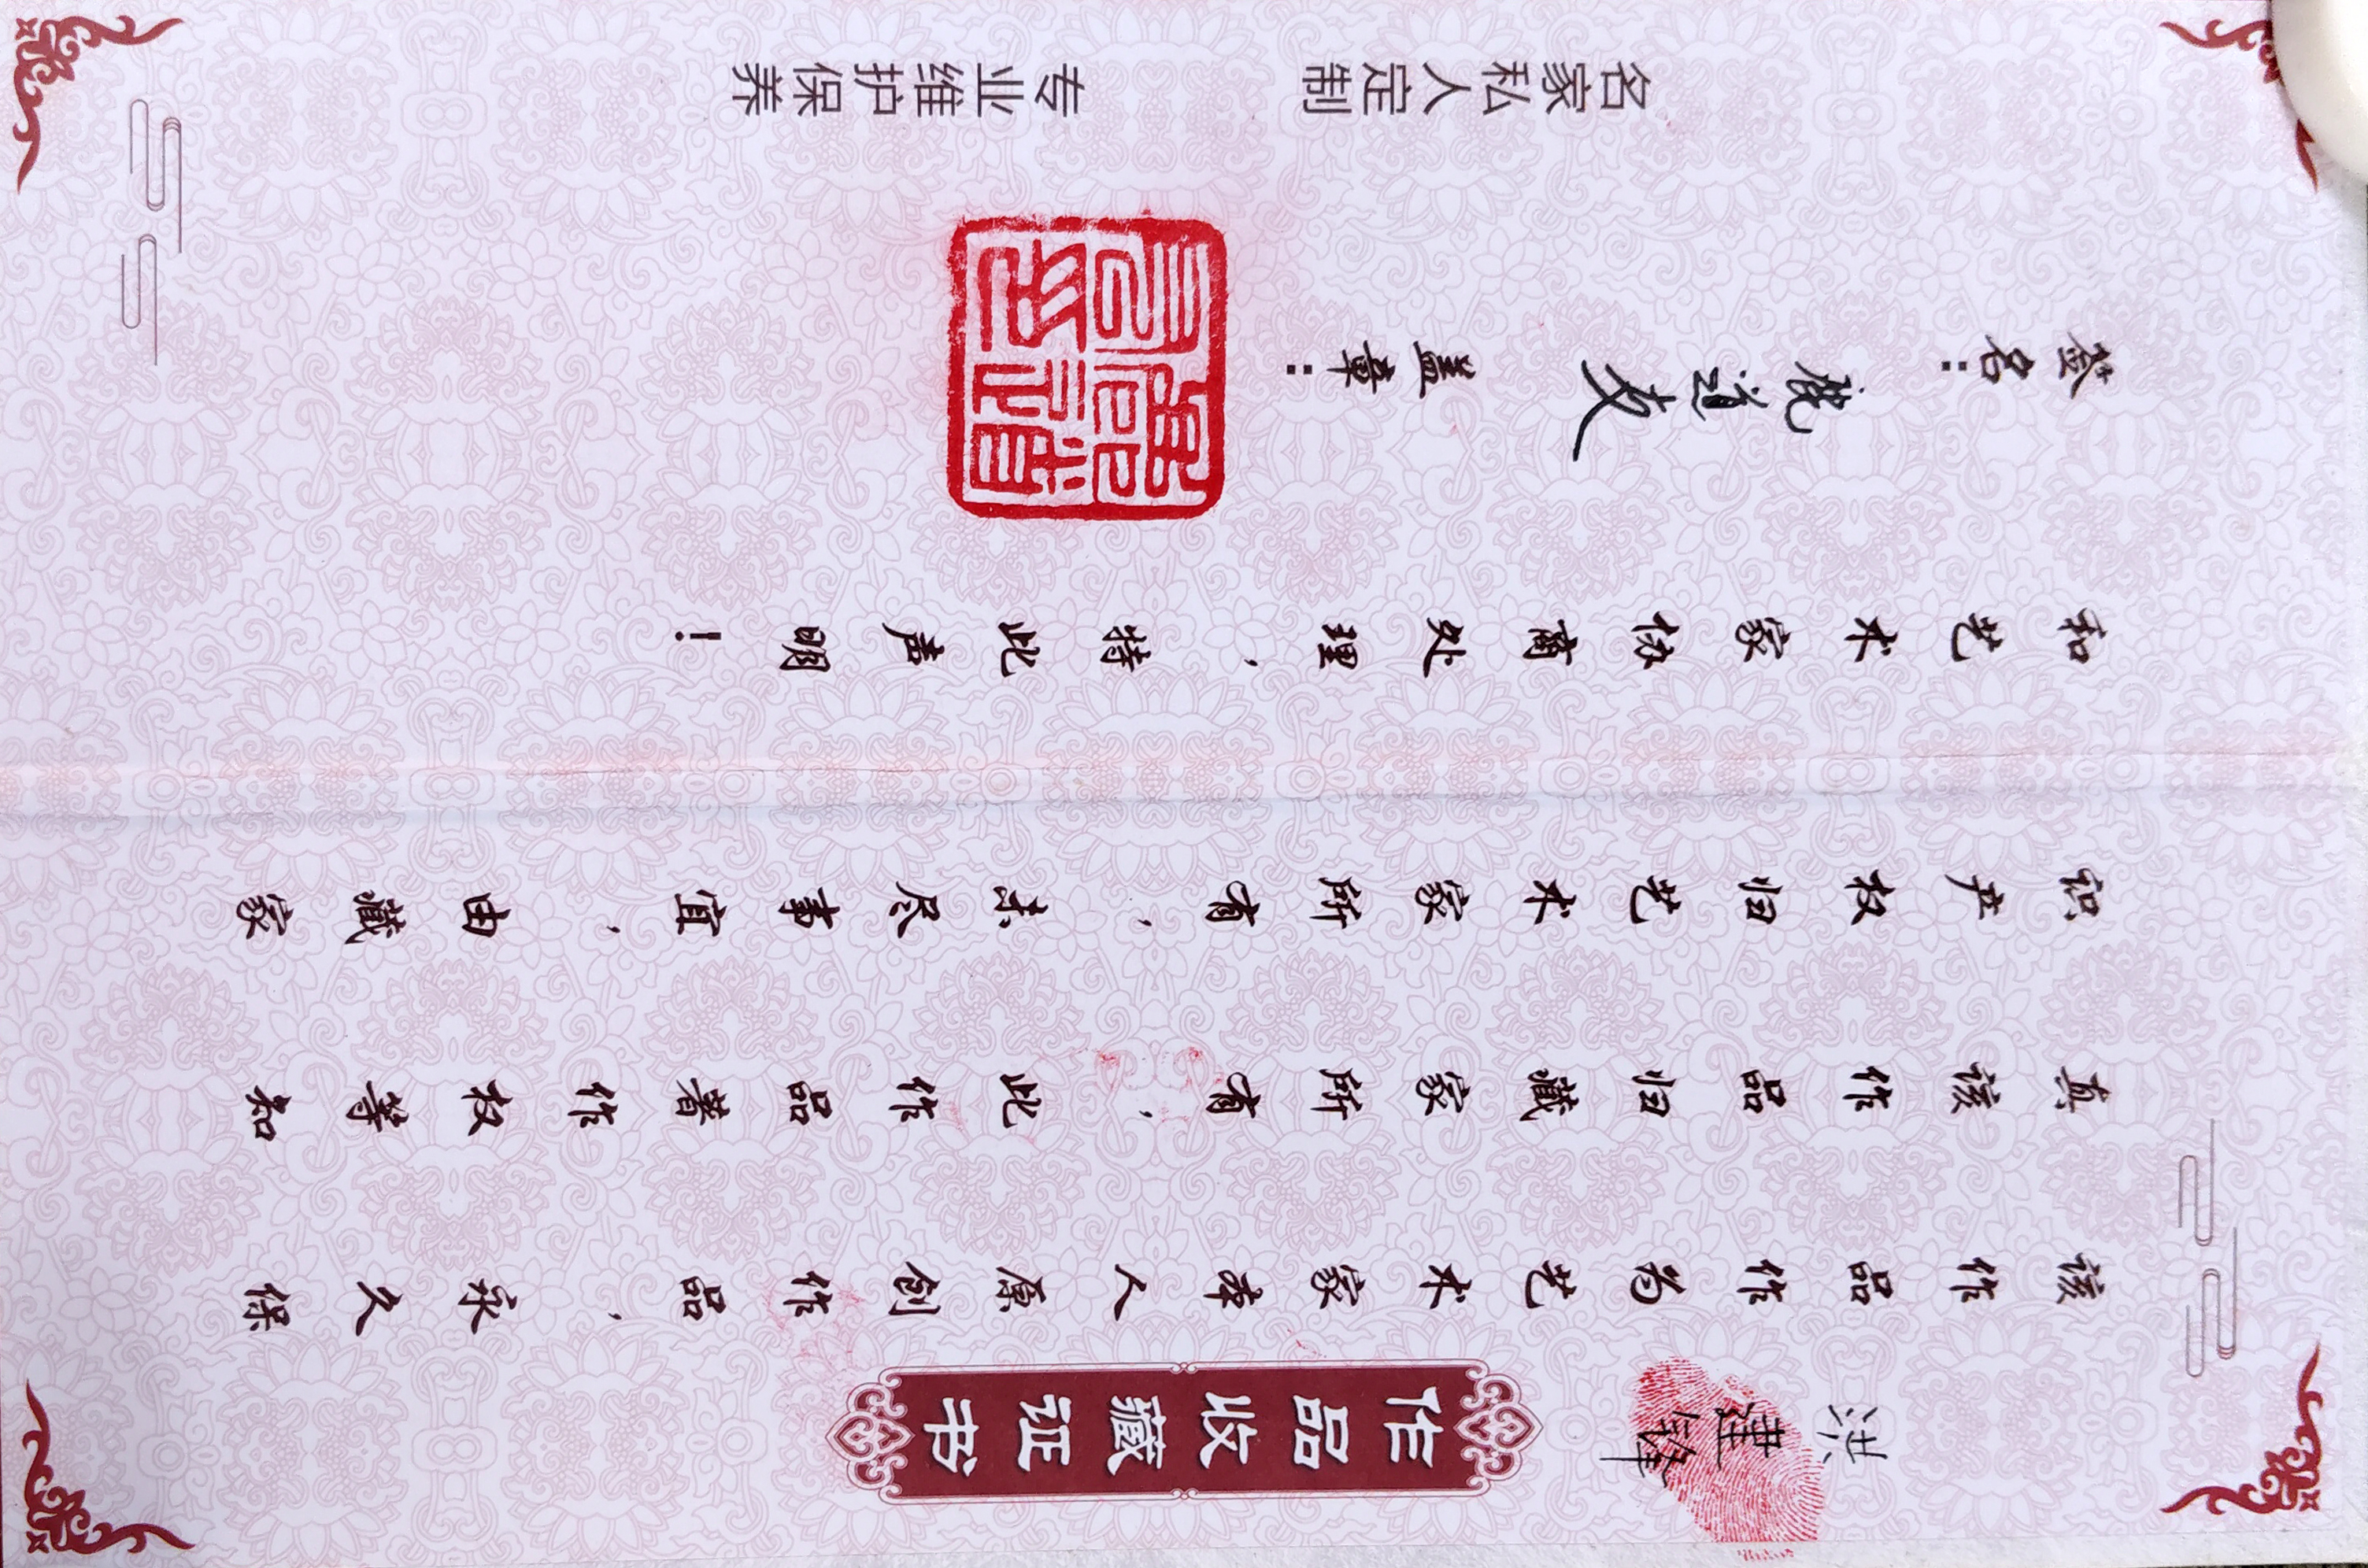 洪建锋 作品收藏证书
该作品作为艺术家本人原创作品，永久保
真该作品归藏家所有，此作品著作权等知
识产权归艺术家所有，未尽事宜，由藏家
和艺术家协商处理，特此声明！
签名： 道友 盖章：
名家私人定制 专业维护保养